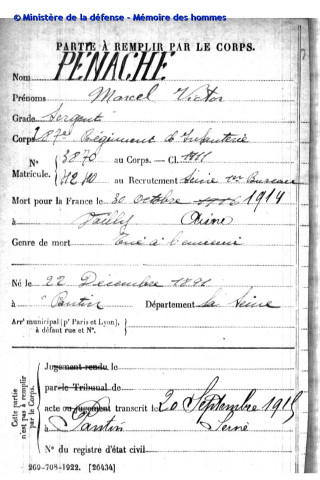 © Ministère de la défense - Mémoire des hommes
PARTIE À REMPLIR PAR LE CORPS.
Nom PENACHE
Prénoms Marcel Victor
Grade Sergent
Corps 287e Régiment d'Infanterie
N° 3870 au Corps. — Cl. 1911
Matricule. au Recrutement Seine 1er Bureau
Mort pour la France le 30 octobre 1914
à Aisne
Genre de mort Tué à l'ennemi
Né le 22 Décembre 1891
à Pantin Département la Seine
Arrt municipal (pr Paris et Lyon),
à défaut rue et N°.
Cette partie
n'est pas à remplir
par le Corps.
Jugement rendu le
par le Tribunal de
acte ou jugement transcrit le 20 Septembre 1915
à Pantin Seine
N° du registre d'état civil
269-708-1922. [26434]